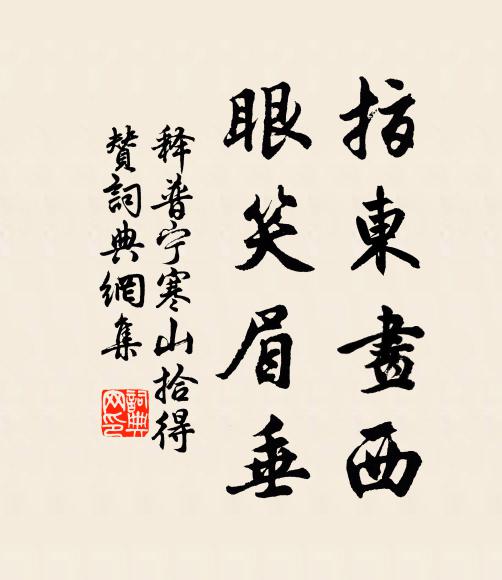 指東畫西
眼笑眉垂
释普宁寒山拾得
贊詞典網集
詞典网印